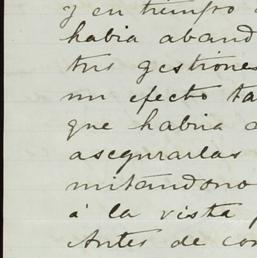 y en tiempo
habia aband
tus gestiones
un efecto ta
que habria
asegurarlas
mitandono
á la vista
Antes de con